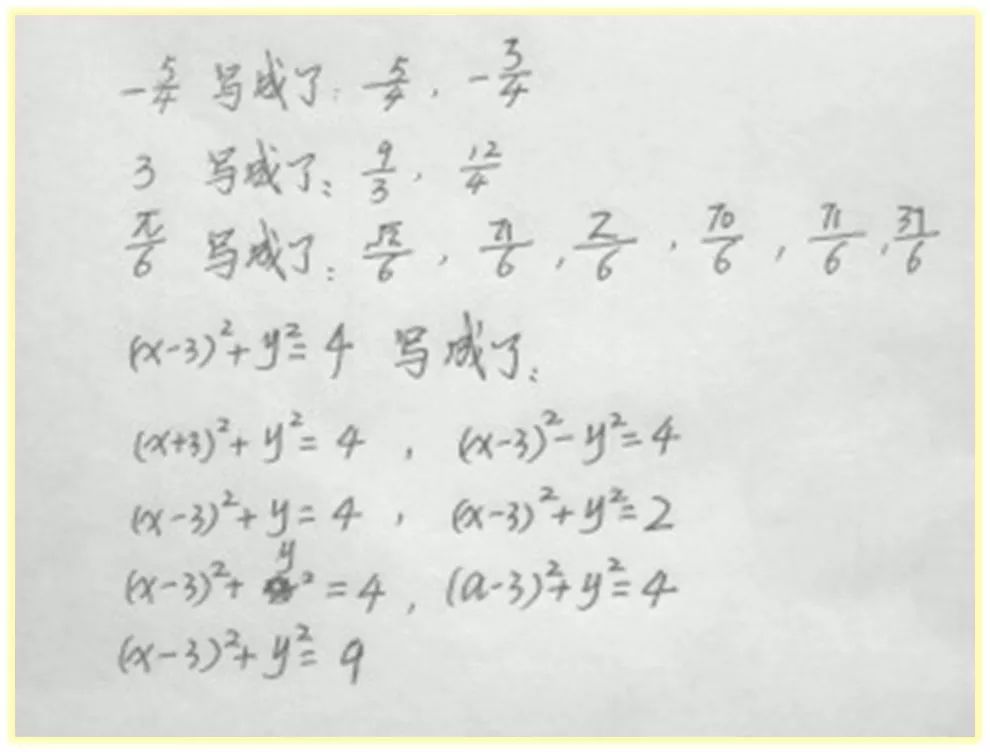 -5/4 写成了: -5/4, -3/4
3 写成了: 9/3, 12/4
π/6 写成了: √2/6, 71/6, Z/6, 70/6, 71/6, 37/6
(x-3)²+y²=4 写成了:
(x+3)²+y²=4, (x-3)²-y²=4
(x-3)²+y=4, (x-3)²+y²=2
(x-3)²+y²=4, (a-3)²+y²=4
(x-3)²+y²=9